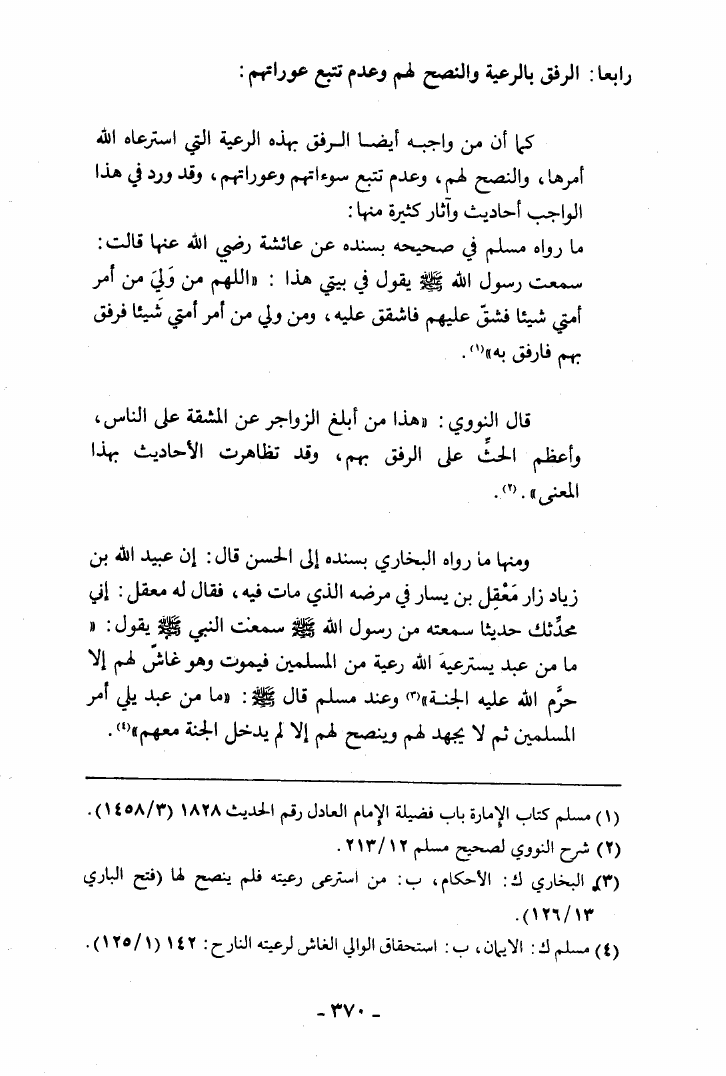 رابعا: الرفق بالرعية والنصح لهم وعدم تتبع عوراتهم:
كما أن من واجبه أيضا الرفق بهذه الرعية التي استرعاه الله
أمرها، والنصح لهم، وعدم تتبع سوءاتهم وعوراتهم، وقد ورد في هذا
الواجب أحاديث وآثار كثيرة منها:
ما رواه مسلم في صحيحه بسنده عن عائشة رضي الله عنها قالت:
سمعت رسول الله ﷺ يقول في بيتي هذا : «اللهم من وَلِيَ من أمر
أمتي شيئا فشقّ عليهم فاشقق عليه، ومن ولي من أمر أمتي شَيئا فرفق
بهم فارفق به»(١).
قال النووي: «هذا من أبلغ الزواجر عن المشقة على الناس،
وأعظم الحثِّ على الرفق بهم، وقد تظاهرت الأحاديث بهذا
المعنى».(٢).
ومنها ما رواه البخاري بسنده إلى الحسن قال: إن عبيد الله بن
زياد زار مَعْقِل بن يسار في مرضه الذي مات فيه، فقال له معقل: إني
محدِّثك حديثا سمعته من رسول الله ﷺ سمعت النبي ﷺ يقول: «
ما من عبد يسترعيه الله رعية من المسلمين فيموت وهو غاشّ لهم إلا
حرَّم الله عليه الجنة»(٣) وعند مسلم قال ﷺ: «ما من عبد يلي أمر
المسلمين ثم لا يجهد لهم وينصح لهم إلا لم يدخل الجنة معهم»(٤).
(١) مسلم كتاب الإمارة باب فضيلة الإمام العادل رقم الحديث ١٨٢٨ (١٤٥٨/٣).
(٢) شرح النووي لصحيح مسلم ٢١٣/١٢.
(٣) البخاري ك: الأحكام، ب: من استرعى رعيته فلم ينصح لها (فتح الباري
١٢٦/١٣).
(٤) مسلم ك: الايمان، ب: استحقاق الوالي الغاش لرعيته النارح: ١٤٢ (١٢٥/١).
- ٣٧٠ -